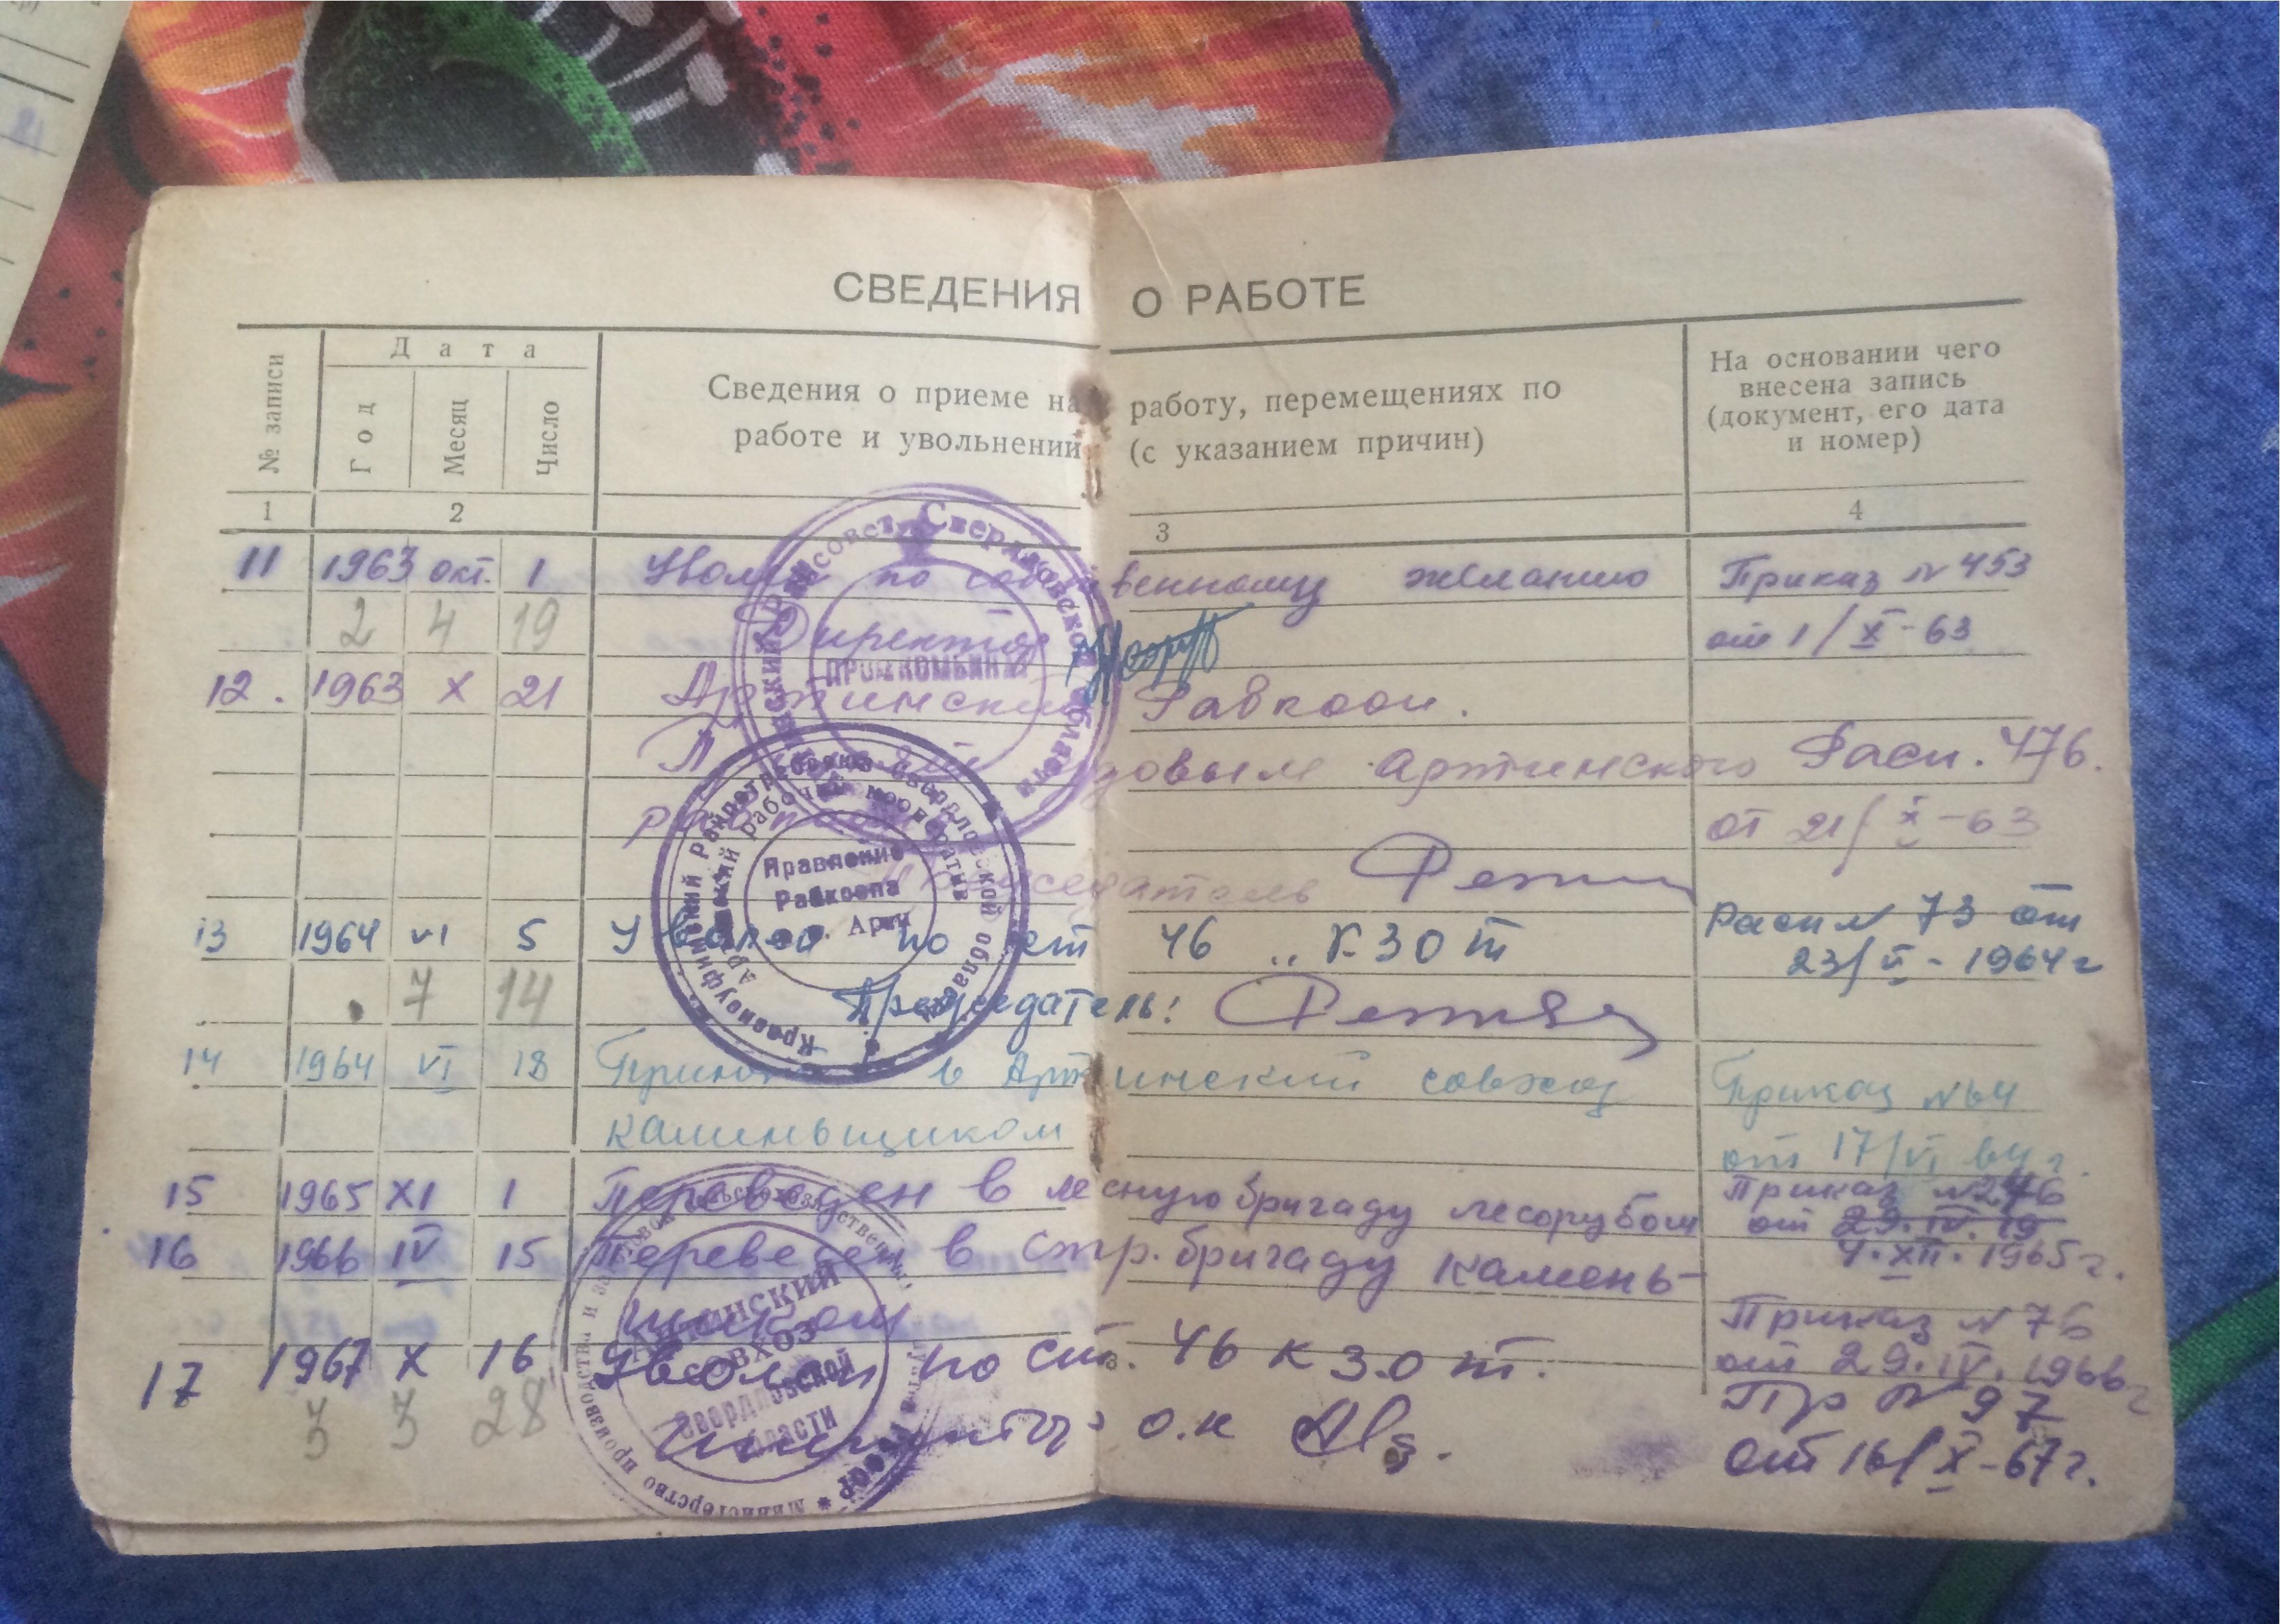 СВЕДЕНИЯ О РАБОТЕ
№ записи
Дата
Год
Месяц
Число
Сведения о приеме на работу, перемещениях по
работе и увольнении (с указанием причин)
На основании чего
внесена запись
(документ, его дата
и номер)
1 2 3 4
11 1963 окт. 1 Уволен по собственному желанию Приказ № 453
2 4 19 Директор от 1/X-63
12. 1963 X 21 Артинский Рабкооп.
довым Артинского Расп. 476.
от 21/X-63
Председатель
13 1964 VI 5 Уволен по ст 46 "КЗОТ Расп № 73 от
23/VI-1964г
7 14 Председатель:
14 1964 VI 18 Принят в Артинский совхоз Приказ № 64
каменьщиком от 17/VI 64г.
15 1965 XI 1 Переведен в лесную бригаду лесорубом Приказ № 276
от 29.IV.19
4.XII.1965г.
16 1966 IV 15 Переведен в стр. бригаду камень-
щиком Приказ № 76
от 29.IV.1966г
17 1967 X 16 Уволен по ст. 46 КЗОТ. Пр № 97
3 3 28 о.к от 16/X-67г.
ПРОМКОМБИНАТ
Свердловской области
Красноуфимский Райпотребсоюз Свердловской области
Артинский рабочий кооператив
Правление
Рабкоопа
Арти
Министерство производства и заготовок сельскохозяйственных продуктов РСФСР
АРТИНСКИЙ
СОВХОЗ
Свердловской
области